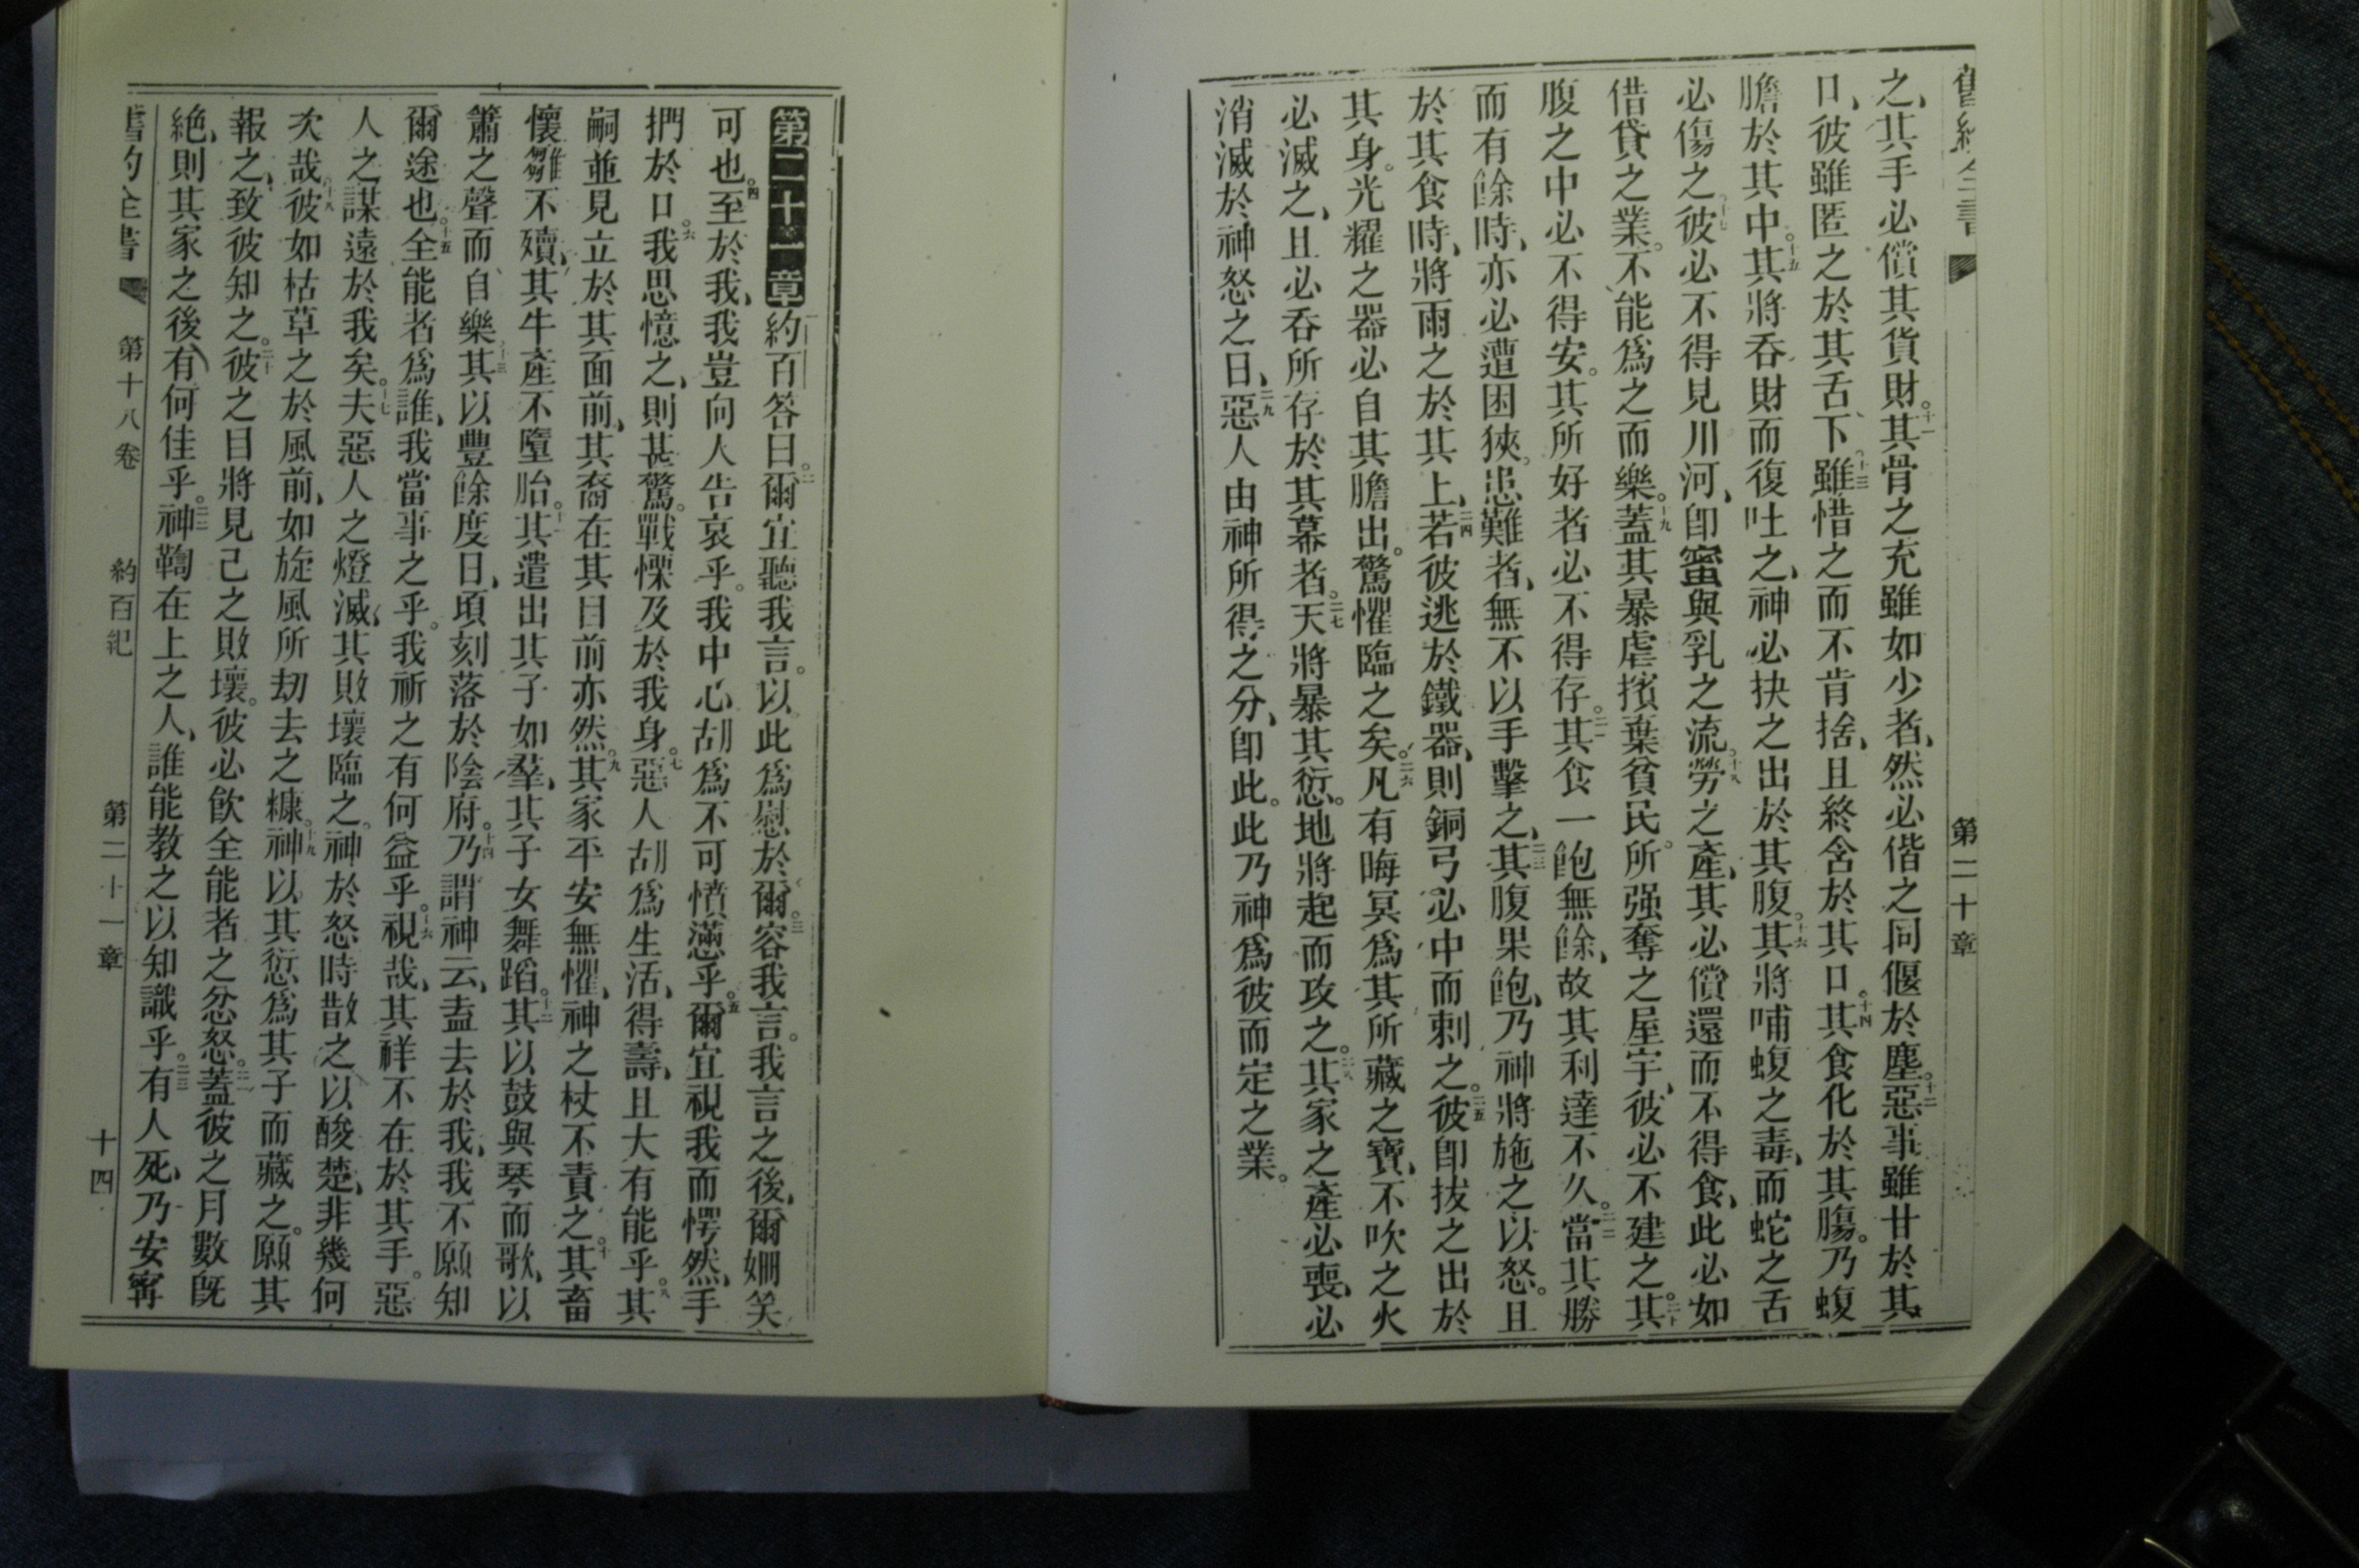 舊約全書 第二十章
之、其手必償其貨財。十一其骨之充雖如少者、然必偕之同偃於塵。十二惡事雖甘於其
口、彼雖匿之於其舌下、十三雖惜之而不肯捨、且終含於其口。十四其食化於其腸。乃蝮
膽於其中。十五其將吞財而復吐之、神必抉之出於其腹。十六其將哺蝮之毒、而蛇之舌
必傷之。十七彼必不得見川河、卽蜜與乳之流。十八勞之產、其必償還而不得食、此必如
借貸之業。不能爲之而樂。十九蓋其暴虐擯棄貧民。所强奪之屋宇、彼必不建之。二十其
腹之中必不得安。其所好者必不得存。二一其食一飽無餘、故其利達不久。二二當其勝
而有餘時、亦必遭困狹。患難者、無不以手擊之、二三其腹果飽、乃神將施之以怒。且
於其食時、將雨之於其上、二四若彼逃於鐵器、則銅弓必中而刺之。二五彼卽拔之出於
其身。光耀之器必自其膽出。驚懼臨之矣。二六凡有晦冥爲其所藏之寶、不吹之火
必滅之、且必吞所存於其幕者。二七天將暴其愆。地將起而攻之。二八其家之產必喪、必
消滅於神怒之日、二九惡人由神所得之分、卽此。此乃神爲彼而定之業。
第二十一章 約百答曰。二爾宜聽我言。以此爲慰於爾。三容我言。我言之後、爾姍笑
可也。四至於我、我豈向人告哀乎。我中心胡爲不可憤懣乎。五爾宜視我而愕然、手
捫於口。六我思憶之、則甚驚。戰慄及於我身。七惡人胡爲生活、得壽、且大有能乎。八其
嗣並見立於其面前、其裔在其目前亦然。九其家平安無懼、神之杖不責之。十其畜
懷雛不殰、其牛產不墮胎。十一其遣出其子如羣、其子女舞蹈。十二其以鼓與琴而歌、以
簫之聲而自樂。十三其以豐餘度日、頃刻落於陰府。十四乃謂神云、盍去於我、我不願知
爾途也。十五全能者爲誰、我當事之乎。我祈之有何益乎。十六視哉、其祥不在於其手。惡
人之謀遠於我矣。十七夫惡人之燈滅、其敗壞臨之。神於怒時散之以酸楚、非幾何
次哉。十八彼如枯草之於風前、如旋風所刧去之糠。十九神以其愆爲其子而藏之。願其
報之、致彼知之。二十彼之目將見己之敗壞。彼必飮全能者之忿怒。二一蓋彼之月數旣
絕、則其家之後有何佳乎。二二神鞫在上之人、誰能教之以知識乎。二三有人死、乃安寗
書約全書 第十八卷 約百紀 第二十一章 十四